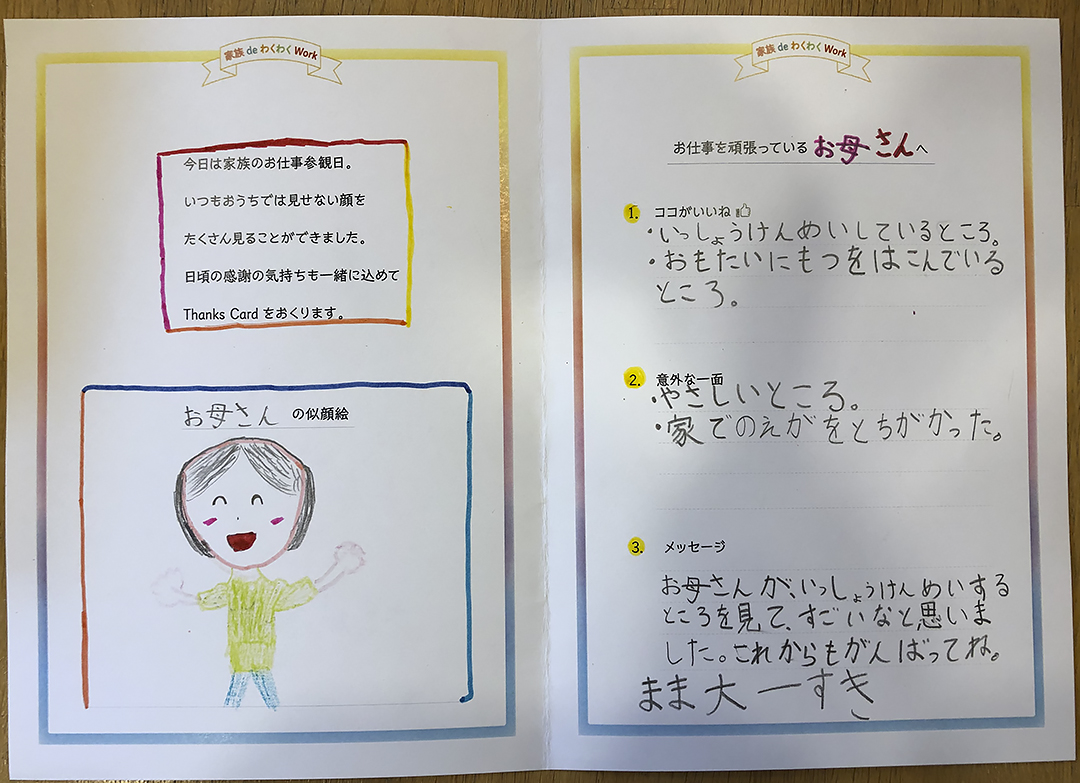 家族 de わくわく Work
今日は家族のお仕事参観日。
いつもおうちでは見せない顔を
たくさん見ることができました。
日頃の感謝の気持ちも一緒に込めて
Thanks Card をおくります。
お母さん の似顔絵
家族 de わくわく Work
お仕事を頑張っている お母さんへ
1. ココがいいね
・いっしょうけんめいしているところ。
・おもたいにもつをはこんでいる
ところ。
2. 意外な一面
・やさしいところ。
・家でのえがをとちがかった。
3. メッセージ
お母さんが、いっしょうけんめいする
ところを見て、すごいなと思いま
した。これからもがんばってね。
まま大一すき